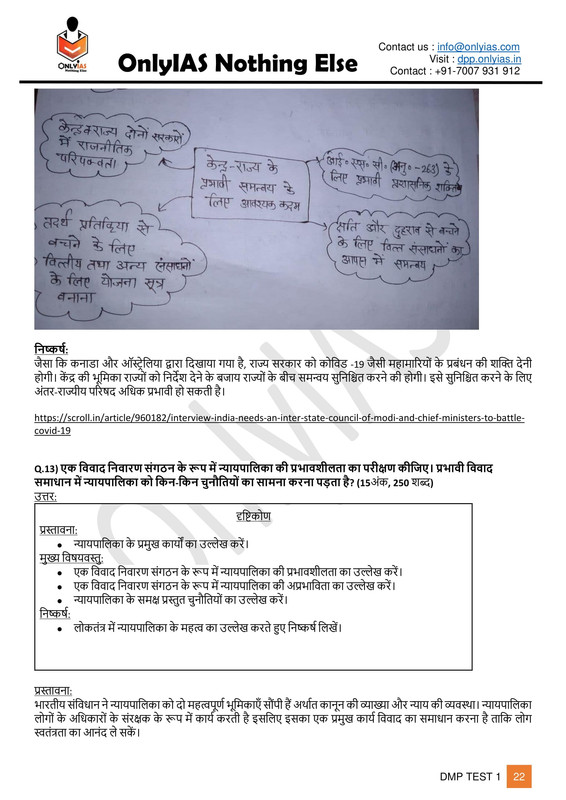 ONLYIAS
Nothing Else
OnlyIAS Nothing Else
Contact us : info@onlyias.com
Visit : dpp.onlyias.in
Contact : +91-7007 931 912
केन्द्र व राज्य दोनों सरकारों
में राजनीतिक
परिपक्वता
केन्द्र-राज्य के
प्रभावी समन्वय के
लिए आवश्यक कदम
आई॰ एस॰ सी॰ (अनु॰ -263) के
लिए प्रभावी प्रशासनिक शक्ति
तदर्थ प्रतिक्रिया से
बचने के लिए
वित्तीय तथा अन्य संसाधनों
के लिए योजना सूत्र
बनाना
क्षति और दुहराव से बचने
के लिए वित्त संसाधनों का
आपस में समन्वय
निष्कर्ष:
जैसा कि कनाडा और ऑस्ट्रेलिया द्वारा दिखाया गया है, राज्य सरकार को कोविड -19 जैसी महामारियों के प्रबंधन की शक्ति देनी
होगी। केंद्र की भूमिका राज्यों को निर्देश देने के बजाय राज्यों के बीच समन्वय सुनिश्चित करने की होगी। इसे सुनिश्चित करने के लिए
अंतर-राज्यीय परिषद अधिक प्रभावी हो सकती है।
https://scroll.in/article/960182/interview-india-needs-an-inter-state-council-of-modi-and-chief-ministers-to-battle-
covid-19
Q.13) एक विवाद निवारण संगठन के रूप में न्यायपालिका की प्रभावशीलता का परीक्षण कीजिए। प्रभावी विवाद
समाधान में न्यायपालिका को किन-किन चुनौतियों का सामना करना पड़ता है? (15अंक, 250 शब्द)
उत्तर:
दृष्टिकोण
प्रस्तावना:
• न्यायपालिका के प्रमुख कार्यों का उल्लेख करें।
मुख्य विषयवस्तु:
• एक विवाद निवारण संगठन के रूप में न्यायपालिका की प्रभावशीलता का उल्लेख करें।
• एक विवाद निवारण संगठन के रूप में न्यायपालिका की अप्रभाविता का उल्लेख करें।
• न्यायपालिका के समक्ष प्रस्तुत चुनौतियों का उल्लेख करें।
निष्कर्ष:
• लोकतंत्र में न्यायपालिका के महत्व का उल्लेख करते हुए निष्कर्ष लिखें।
प्रस्तावना:
भारतीय संविधान ने न्यायपालिका को दो महत्वपूर्ण भूमिकाएँ सौंपी हैं अर्थात कानून की व्याख्या और न्याय की व्यवस्था। न्यायपालिका
लोगों के अधिकारों के संरक्षक के रूप में कार्य करती है इसलिए इसका एक प्रमुख कार्य विवाद का समाधान करना है ताकि लोग
स्वतंत्रता का आनंद ले सकें।
DMP TEST 1 22